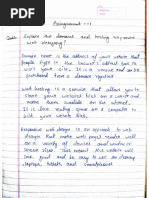 Assignment - 1
Explain the domain and hosting responsive
web designing?
Domain name is the address of your website that
people type in the browser's address bar to
visit your website. It is a unique and can be
purchased from a domain registrar
Web hosting is a service that allows you to
store your website files on a server and
make them available on the internet. It is
a space where your website lives on the
internet
Responsive web design is an approach to web
design that make web pages render well
on a variety of devices and window or
screen sizes. This means the website will
look good and be easy to use on desktop
laptops, tablets and smartphones